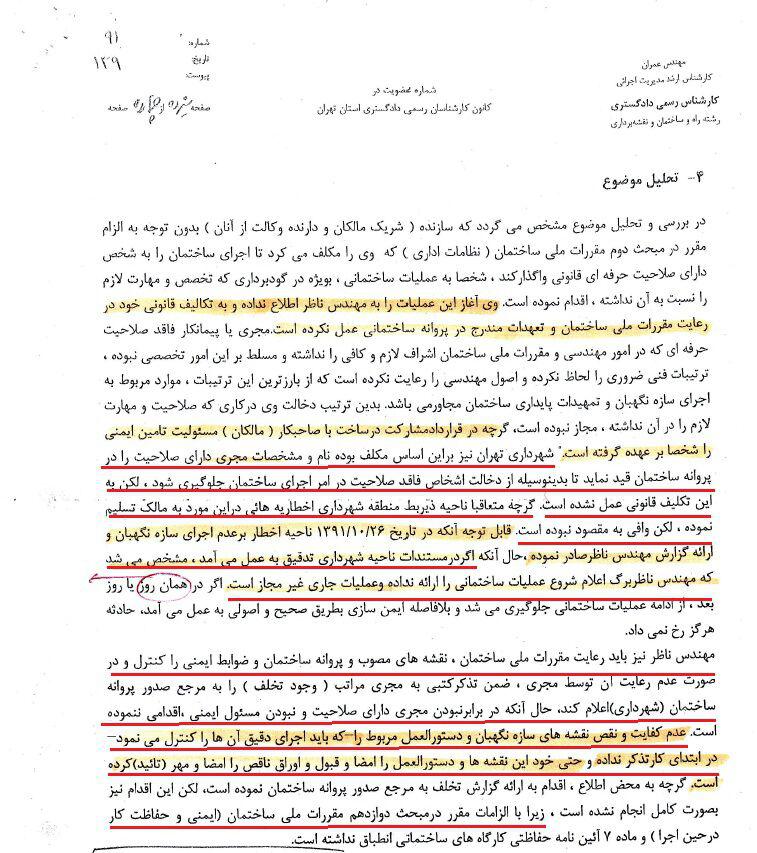 شماره: ۹۱
تاریخ: ۱۳۹
پیوست:
صفحه از صفحه
شماره عضویت در
کانون کارشناسان رسمی دادگستری استان تهران
مهندس عمران
کارشناس ارشد مدیریت اجرائی
کارشناس رسمی دادگستری
رشته راه و ساختمان و نقشه‌برداری
۴- تحلیل موضوع
در بررسی و تحلیل موضوع مشخص می گردد که سازنده ( شریک مالکان و دارنده وکالت از آنان ) بدون توجه به الزام
مقرر در مبحث دوم مقررات ملی ساختمان ( نظامات اداری ) که وی را مکلف می کرد تا اجرای ساختمان را به شخص
دارای صلاحیت حرفه ای قانونی واگذارکند ، شخصا به عملیات ساختمانی ، بویژه در گودبرداری که تخصص و مهارت لازم
را نسبت به آن نداشته ، اقدام نموده است. وی آغاز این عملیات را به مهندس ناظر اطلاع نداده و به تکالیف قانونی خود در
رعایت مقررات ملی ساختمان و تعهدات مندرج در پروانه ساختمانی عمل نکرده است.مجری یا پیمانکار فاقد صلاحیت
حرفه ای که در امور مهندسی و مقررات ملی ساختمان اشراف لازم و کافی را نداشته و مسلط بر این امور تخصصی نبوده ،
ترتیبات فنی ضروری را لحاظ نکرده و اصول مهندسی را رعایت نکرده است که از بارزترین این ترتیبات ، موارد مربوط به
اجرای سازه نگهبان و تمهیدات پایداری ساختمان مجاورمی باشد. بدین ترتیب دخالت وی درکاری که صلاحیت و مهارت
لازم را در آن نداشته ، مجاز نبوده است، گرچه در قراردادمشارکت درساخت با صاحبکار ( مالکان ) مسئولیت تامین ایمنی
را شخصا بر عهده گرفته است. شهرداری تهران نیز براین اساس مکلف بوده نام و مشخصات مجری دارای صلاحیت را در
پروانه ساختمان قید نماید تا بدینوسیله از دخالت اشخاص فاقد صلاحیت در امر اجرای ساختمان جلوگیری شود ، لکن به
این تکلیف قانونی عمل نشده است. گرچه متعاقبا ناحیه ذیربط منطقه شهرداری اخطاریه هائی دراین مورد به مالک تسلیم
نموده ، لکن وافی به مقصود نبوده است. قابل توجه آنکه در تاریخ ۱۳۹۱/۱۰/۲۶ ناحیه اخطار برعدم اجرای سازه نگهبان و
ارائه گزارش مهندس ناظرصادر نموده ،حال آنکه اگردرمستندات ناحیه شهرداری تدقیق به عمل می آمد ، مشخص می شد
که مهندس ناظربرگ اعلام شروع عملیات ساختمانی را ارائه نداده وعملیات جاری غیر مجاز است. اگر در همان روز یا روز
بعد ، از ادامه عملیات ساختمانی جلوگیری می شد و بلافاصله ایمن سازی بطریق صحیح و اصولی به عمل می آمد، حادثه
هرگز رخ نمی داد.
مهندس ناظر نیز باید رعایت مقررات ملی ساختمان ، نقشه های مصوب و پروانه ساختمان و ضوابط ایمنی را کنترل و در
صورت عدم رعایت آن توسط مجری ، ضمن تذکرکتبی به مجری مراتب ( وجود تخلف ) را به مرجع صدور پروانه
ساختمان (شهرداری)اعلام کند، حال آنکه در برابرنبودن مجری دارای صلاحیت و نبودن مسئول ایمنی ،اقدامی ننموده
است. عدم کفایت و نقص نقشه های سازه نگهبان و دستورالعمل مربوط را-که باید اجرای دقیق آن ها را کنترل می نمود-
در ابتدای کارتذکر نداده و حتی خود این نقشه ها و دستورالعمل را امضا و قبول و اوراق ناقص را امضا و مهر (تائید)کرده
است. گرچه به محض اطلاع ، اقدام به ارائه گزارش تخلف به مرجع صدور پروانه ساختمان نموده است، لکن این اقدام نیز
بصورت کامل انجام نشده است ، زیرا با الزامات مقرر درمبحث دوازدهم مقررات ملی ساختمان (ایمنی و حفاظت کار
درحین اجرا ) و ماده ۷ آئین نامه حفاظتی کارگاه های ساختمانی انطباق نداشته است.